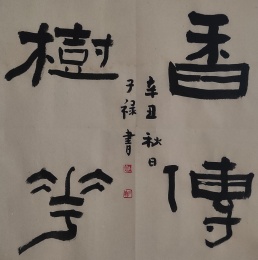 香傳
樹花
辛丑秋日
子禄書